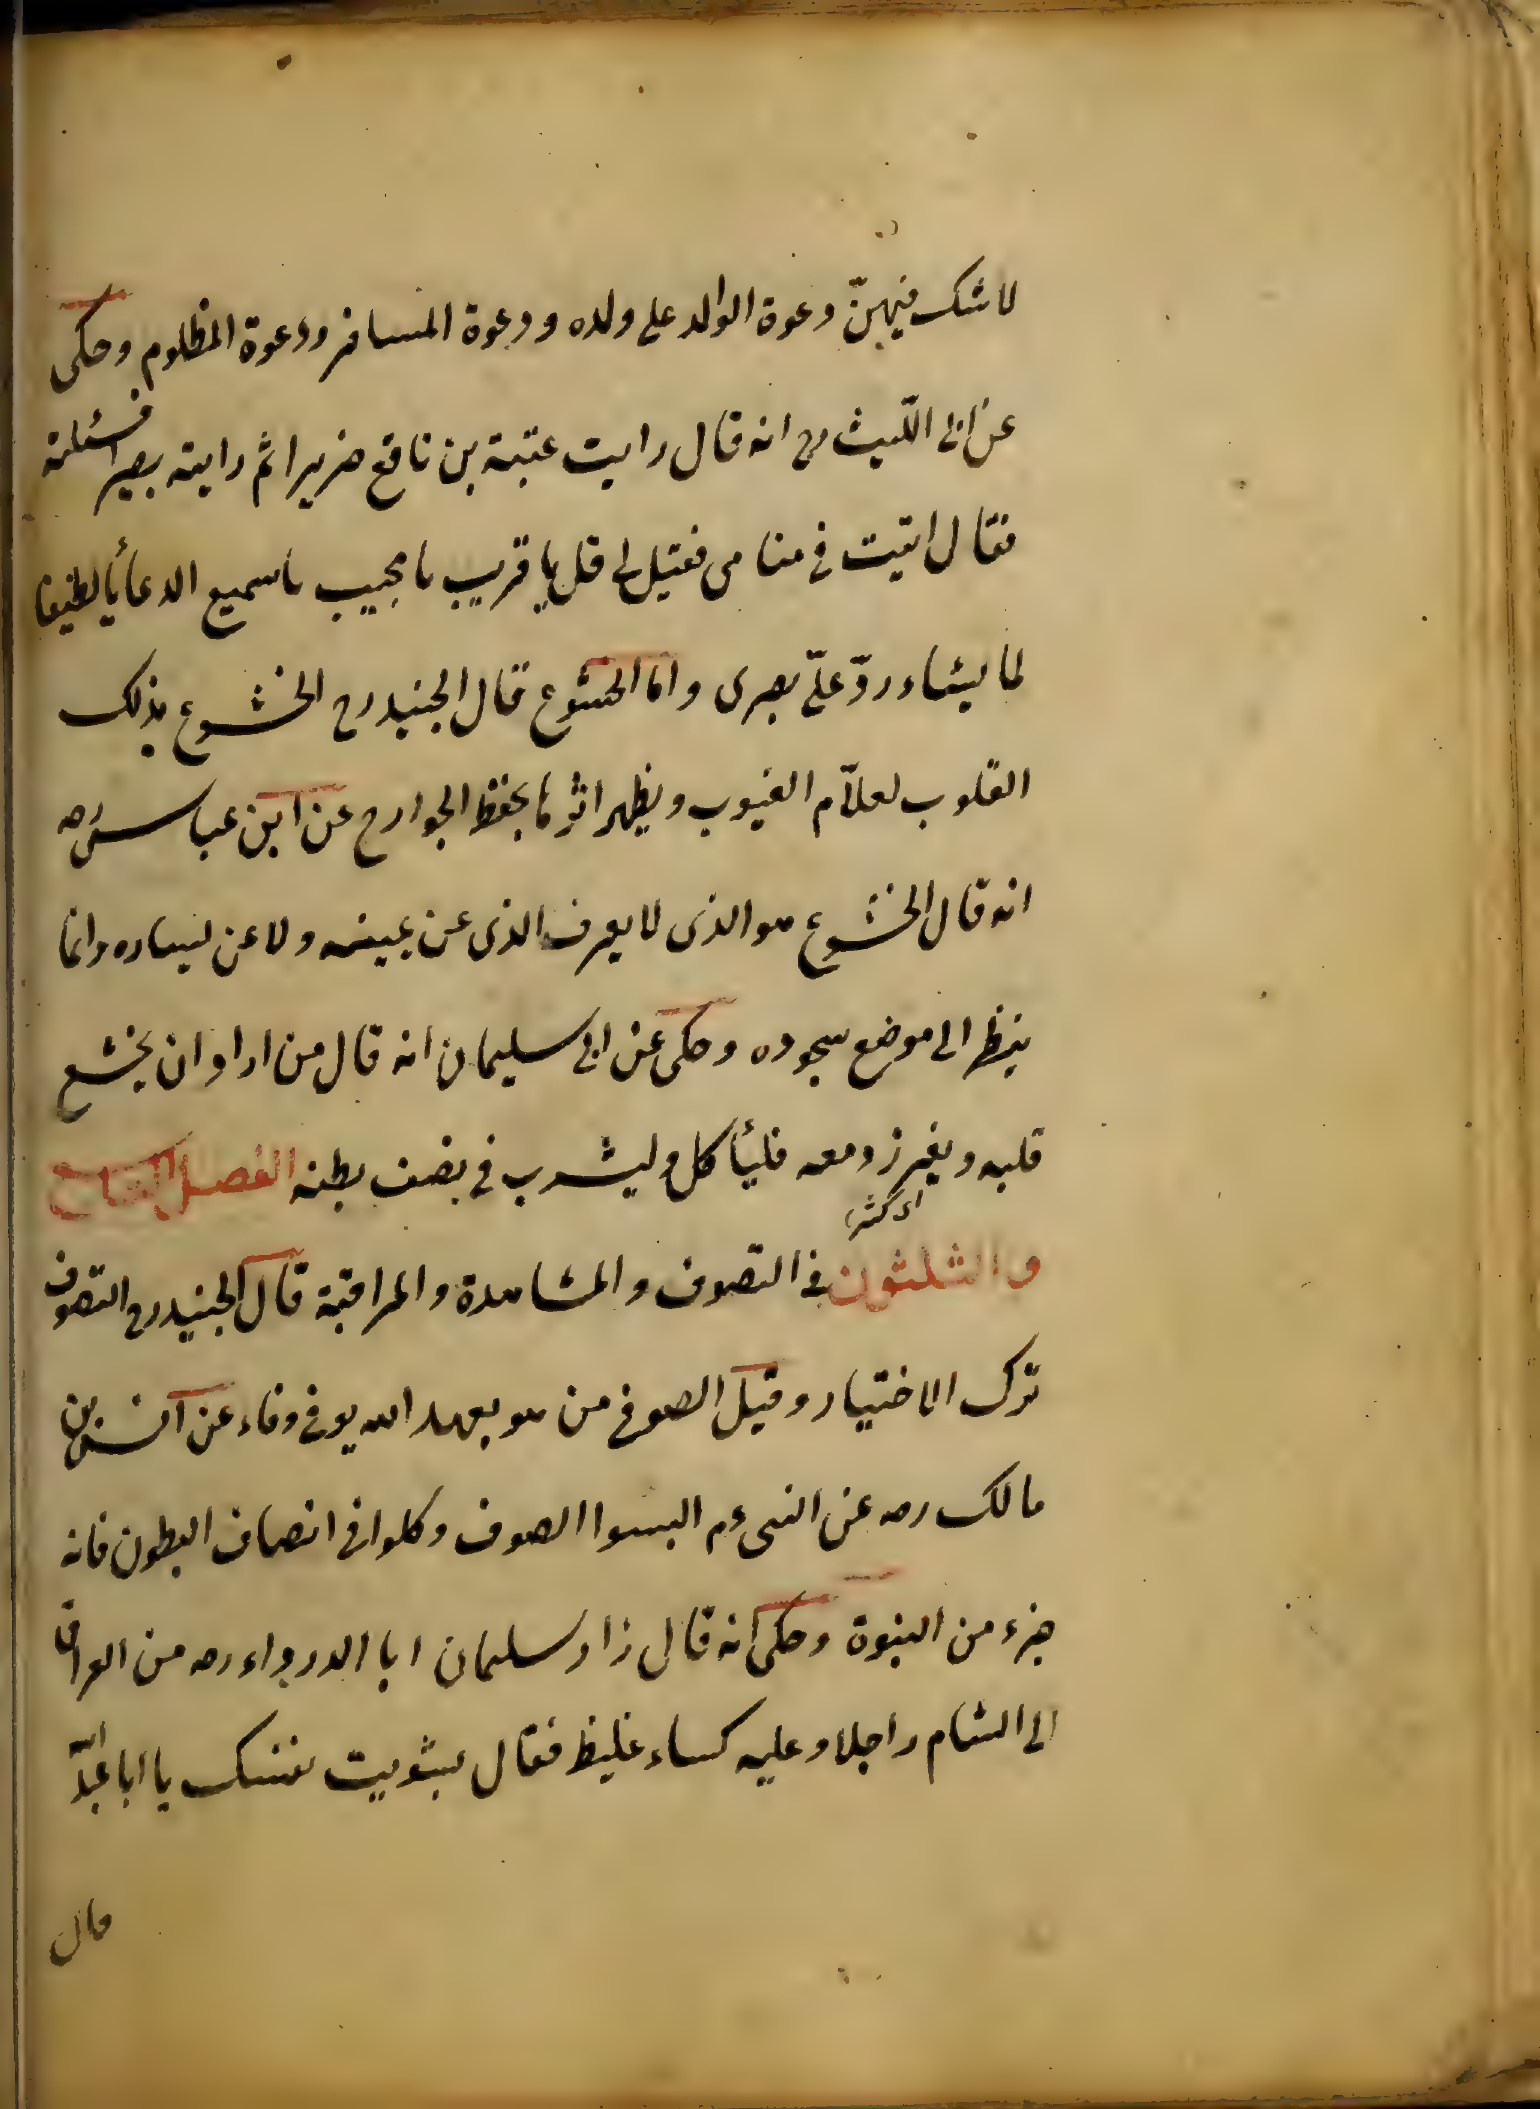 لا شك فيهنّ دعوة الوالد على ولده ودعوة المسافر ودعوة المظلوم وحكى
عن ابى الليث رح انه قال رايت عتبة بن نافع ضريرا ثم رايته بصيرا فسئلته
فقال اتيت فى منامى فقيل لى قل يا قريب يا مجيب يا سميع الدعأ يا لطيفا
لما يشاء وردّ علىّ بصرى واما الخشوع قال الجنيد رح الخشوع بذلك
القلوب لعلاّم الغيوب ويظهر اثرها بحفظ الجوارح عن ابن عباس رضه
انه قال الخشوع هو الذى لا يعرف الذى عن يمينه ولا عن يساره وانما
ينظر الى موضع سجوده وحكى عن ابى سليمان انه قال من اراد ان يخشع
قلبه ويغرز دمعه فليأكل وليشرب فى نصف بطنه الفصل التاسع
اى كثر
والثلثون فى التصوف والمشاهدة والمراقبة قال الجنيد رح التصوف
ترك الاختيار وقيل الصوفى من هو بعهد الله يوفى وفاء عن انس بن
مالك رضه عن النبى عم البسوا الصوف وكلوا فى انصاف البطون فانه
جزء من النبوة وحكى انه قال زار سليمان ابا الدرداء رضه من العراق
الى الشام راجلا وعليه كساء غليظ فقال بشويت نفسك يا ابا عبد الله
قال